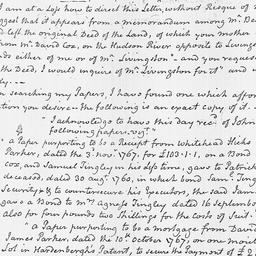 I am at a Loss how to direct this Letter, without Resque of
ggest that it appears from a memorandum among Mr. De
d left the original Deed of the Land, of which your mother
from Mr. David Cox, on the Hudson River opposite to Livings
nds either of me or of Mr. Livingston" - and you request
the Deed, I would enquire of Mr. Livingston for it" and
ly.
searching my Papers, I have found one which affor
tion you desire - the following is an exact copy of it. -
"I acknowledge to have this day recd. of John
following papers, vizt."
a Paper purporting to be a Receipt from Whitehead Hicks
Parker, dated the 3. Novr. 1767. for £103.1.1, on a Bond
Cox, and Samuel Tingley in his life time, gave to Patrick
deceased, dated 30 augt. 1760, in which bond Saml. Tingl
Security, & to countersecure his Executors, the said Jam
gave a Bond to Mrs. Agness Tingley dated 16 Septemb
also for four pounds two Shillings for the Costs of Suit.
a Paper purporting to be a mortgage from David
James Parker, dated the 10th October 1767, on one moi
Lot in Hardenbergh's Patent, to secure the Payment of £